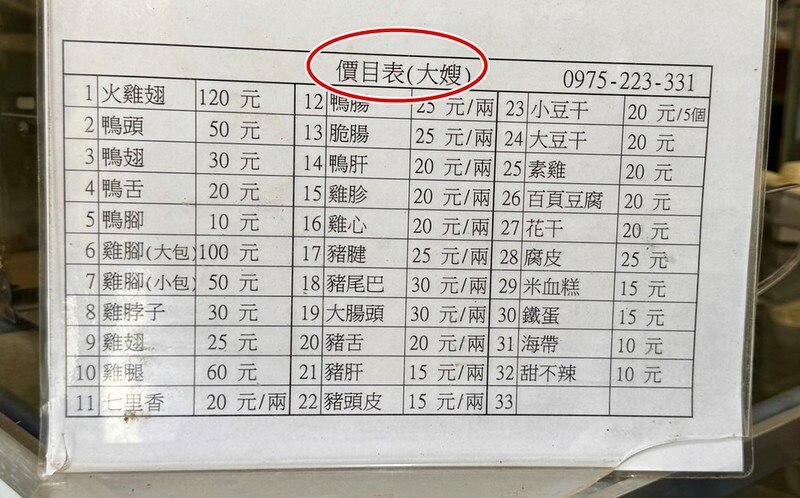 價目表(大嫂) 0975-223-331
1 火雞翅 120 元 12 鴨腸 25 元/兩 23 小豆干 20 元/5個
2 鴨頭 50 元 13 脆腸 25 元/兩 24 大豆干 20 元
3 鴨翅 30 元 14 鴨肝 20 元/兩 25 素雞 20 元
4 鴨舌 20 元 15 雞胗 20 元/兩 26 百頁豆腐 20 元
5 鴨腳 10 元 16 雞心 20 元/兩 27 花干 20 元
6 雞腳(大包) 100 元 17 豬腱 25 元/兩 28 腐皮 25 元
7 雞腳(小包) 50 元 18 豬尾巴 30 元/兩 29 米血糕 15 元
8 雞脖子 30 元 19 大腸頭 30 元/兩 30 鐵蛋 15 元
9 雞翅 25 元 20 豬舌 20 元/兩 31 海帶 10 元
10 雞腿 60 元 21 豬肝 15 元/兩 32 甜不辣 10 元
11 七里香 20 元/兩 22 豬頭皮 15 元/兩 33